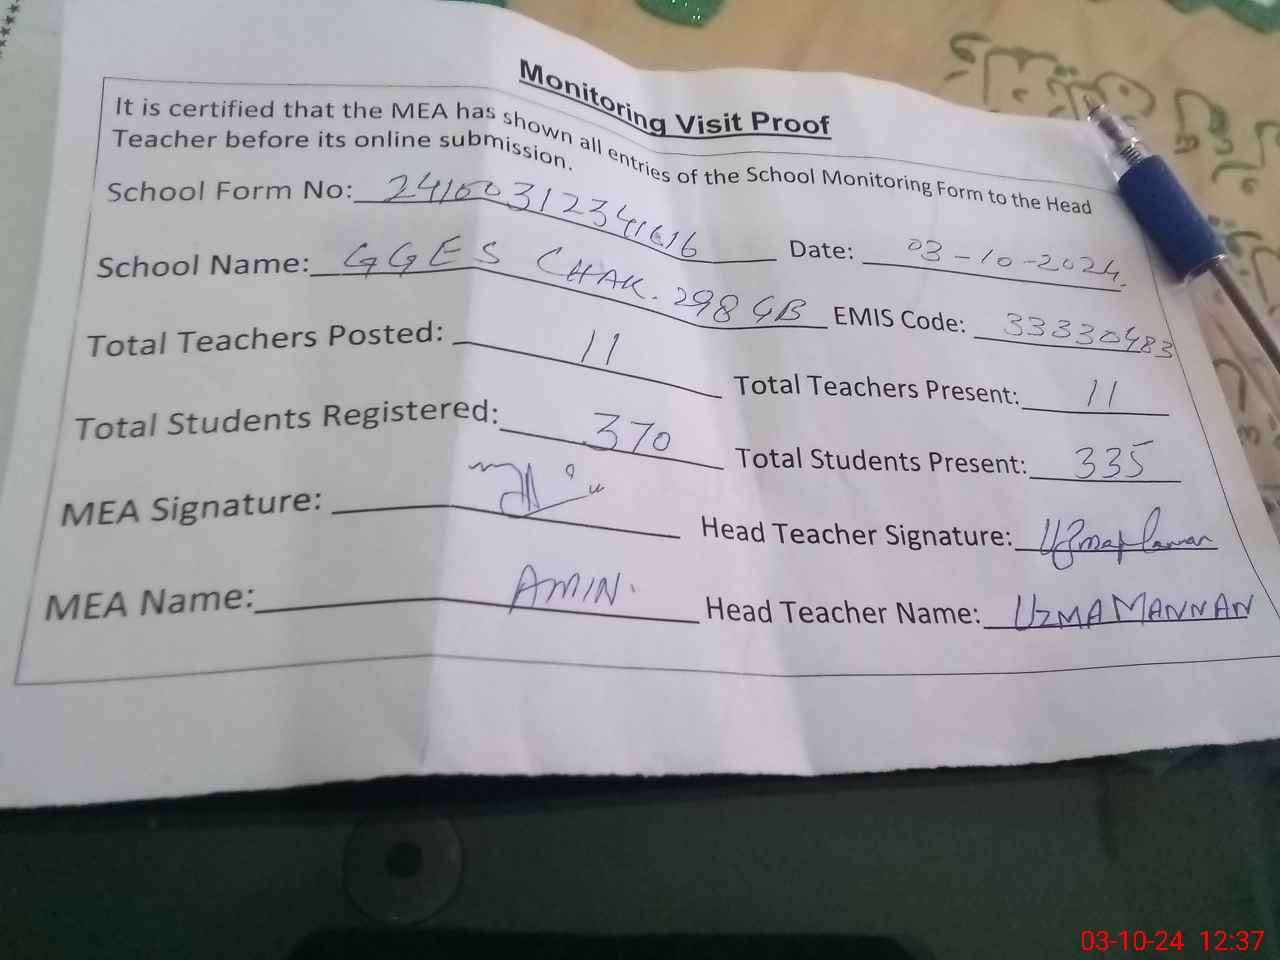 Monitoring Visit Proof
It is certified that the MEA has shown all entries of the School Monitoring Form to the Head
Teacher before its online submission.
School Form No: 24100312341616 Date: 03-10-2024.
School Name: GGES CHAK. 298 GB EMIS Code: 33330483
Total Teachers Posted: 11 Total Teachers Present: 11
Total Students Registered: 370 Total Students Present: 335
MEA Signature: Head Teacher Signature:
MEA Name: AMIN. Head Teacher Name: UZMA MANNAN
03-10-24 12:37